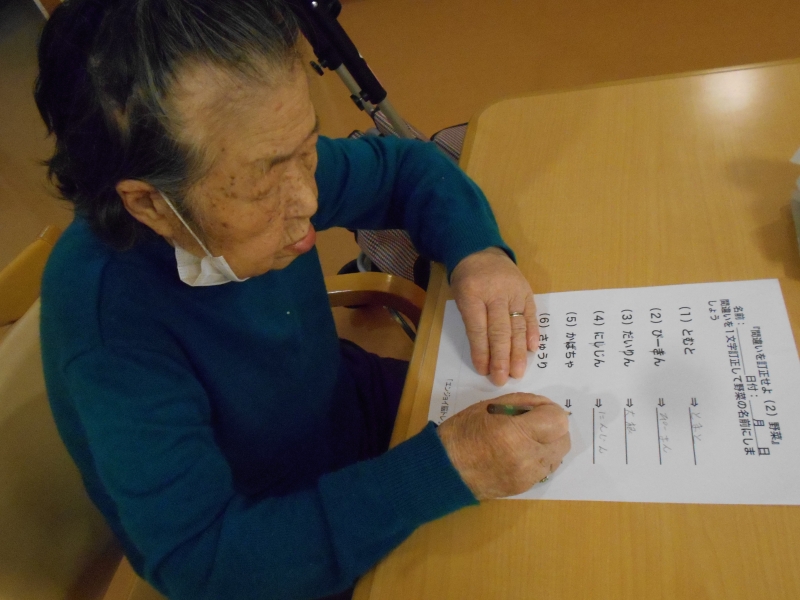 『間違いを訂正せよ（2）野菜』
名前：　　　日付：　月　日
間違いを１文字訂正して野菜の名前にしま
しょう
（1）とむと　⇒ とまと
（2）びーまん　⇒
（3）だいりん　⇒
（4）にじじん　⇒ にんじん
（5）かばちゃ　⇒
（6）さゅうり